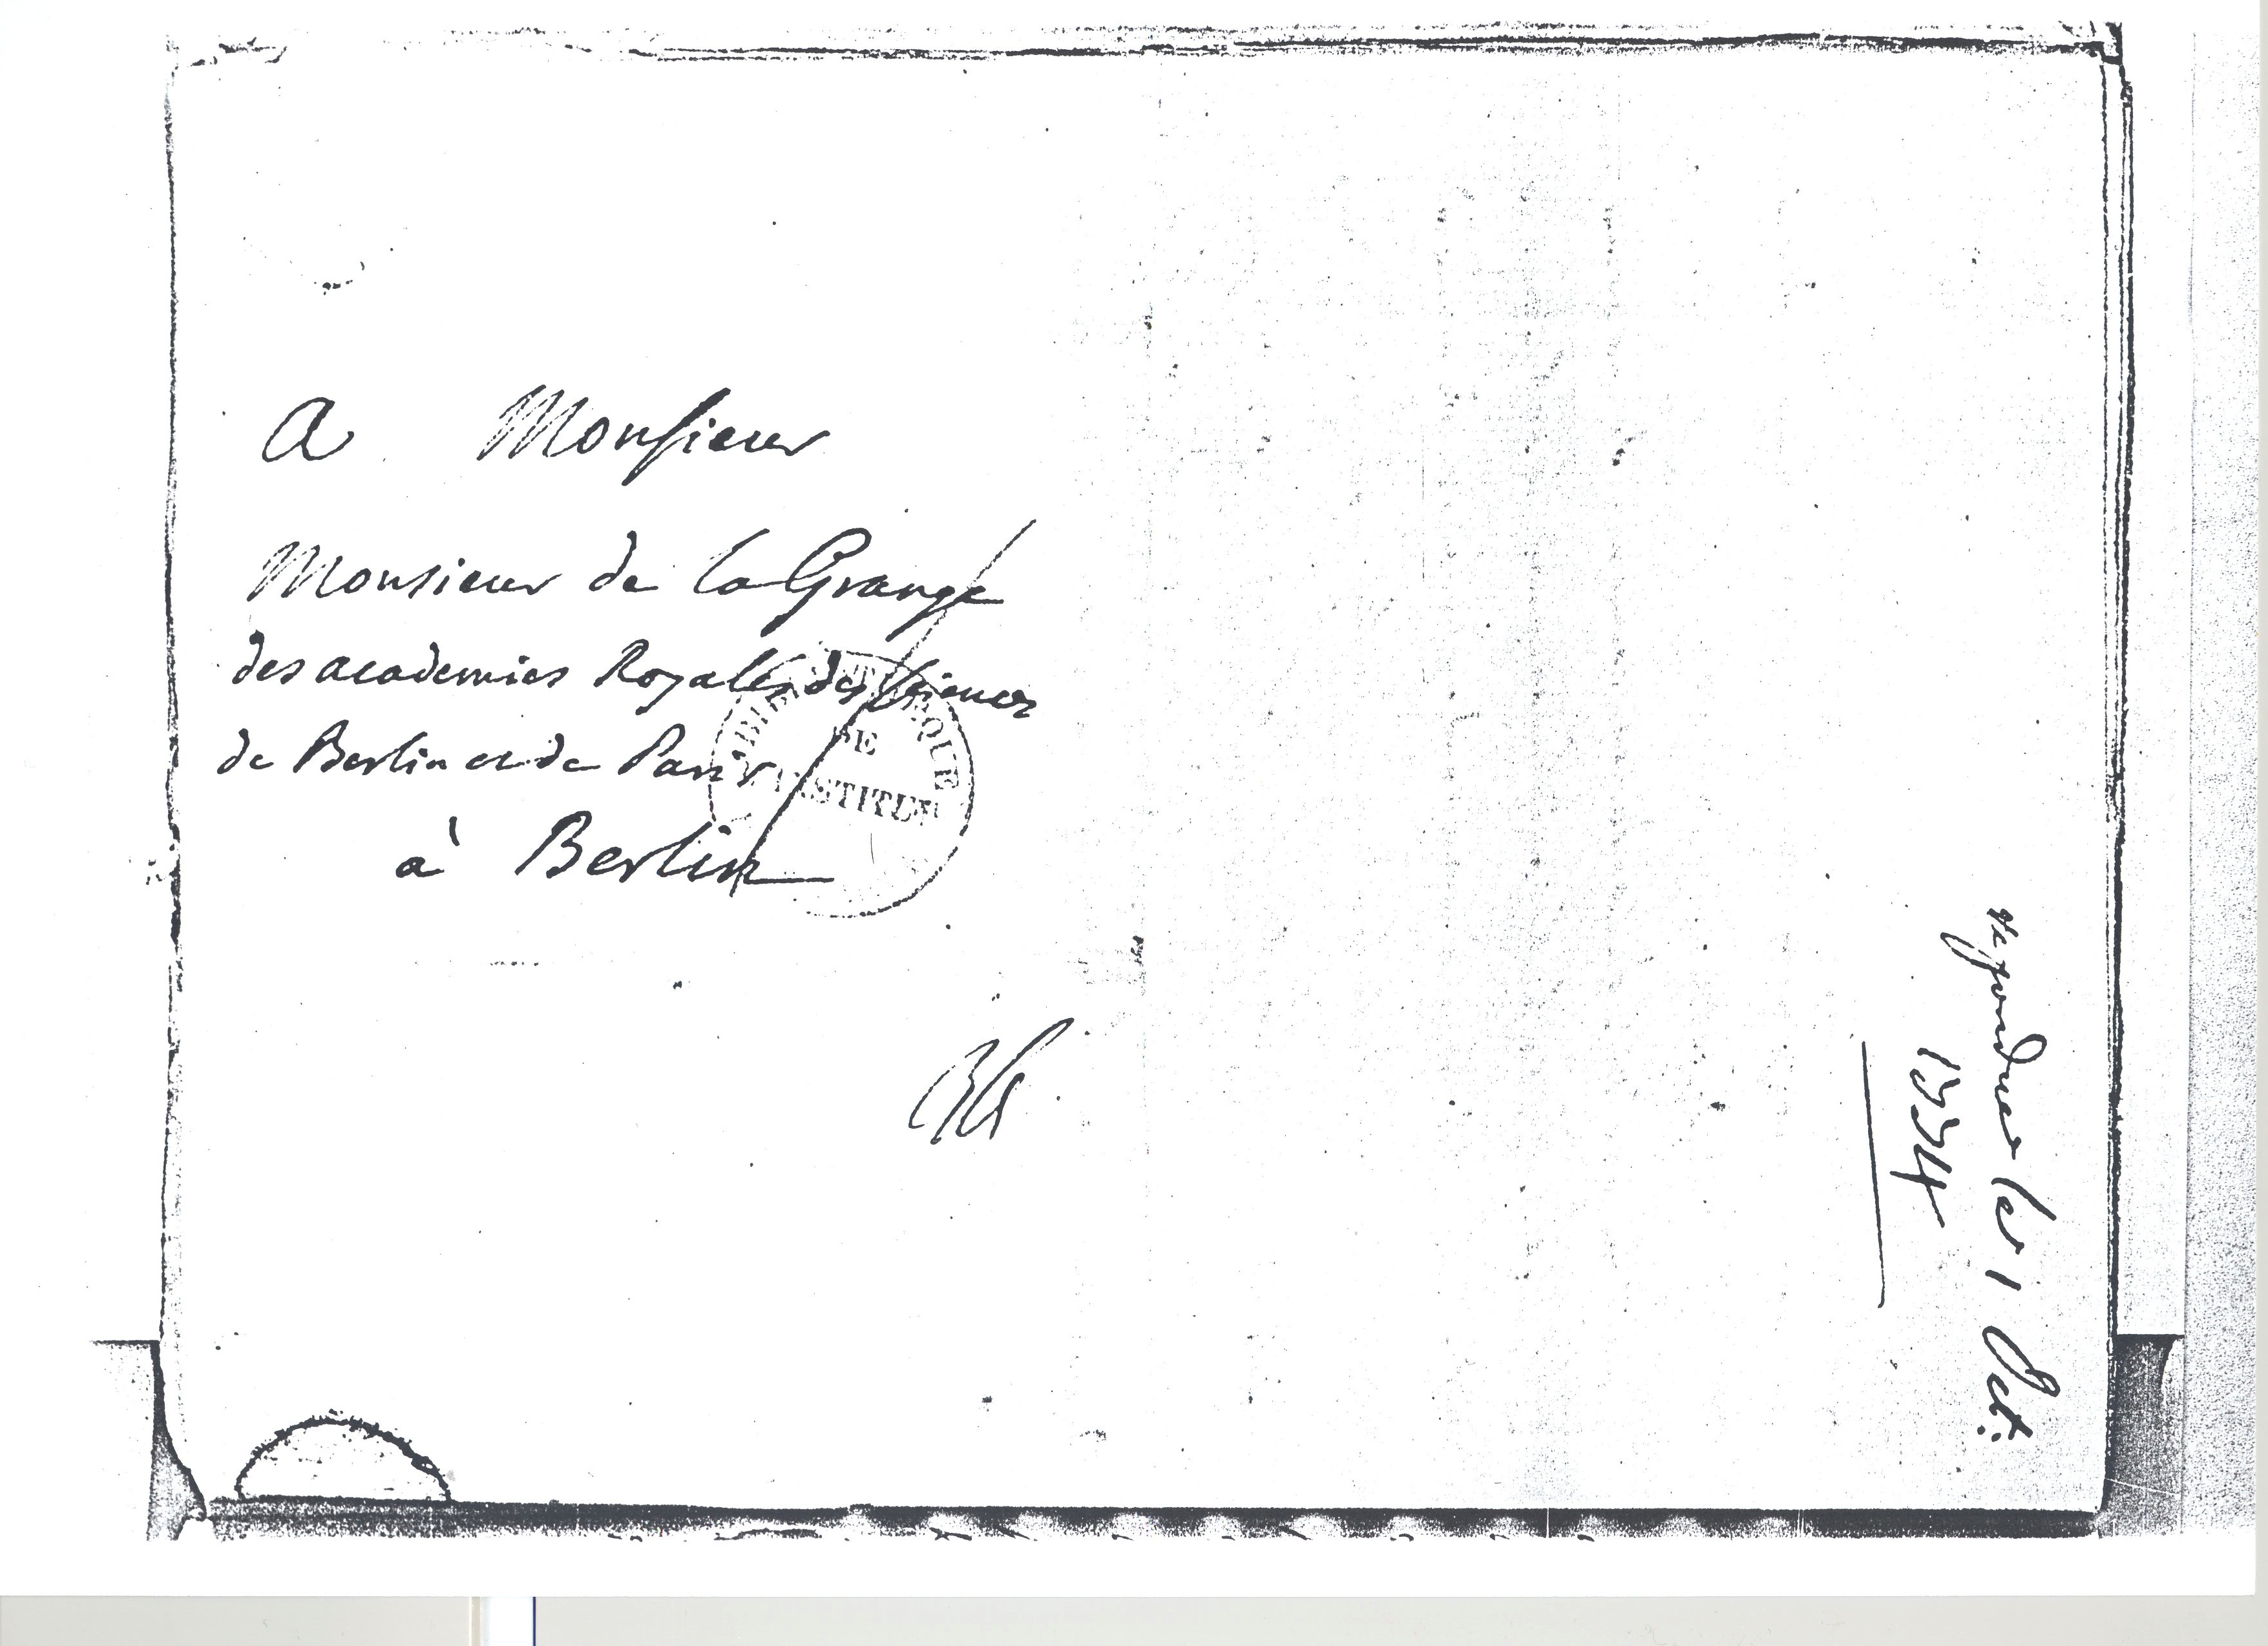 A Monsieur
Monsieur de la Grange
des academies Royales des Sciences
de Berlin et de Paris
à Berlin
BIBLIOTHEQUE
DE
L'INSTITUT
les 1 Oct:
1774